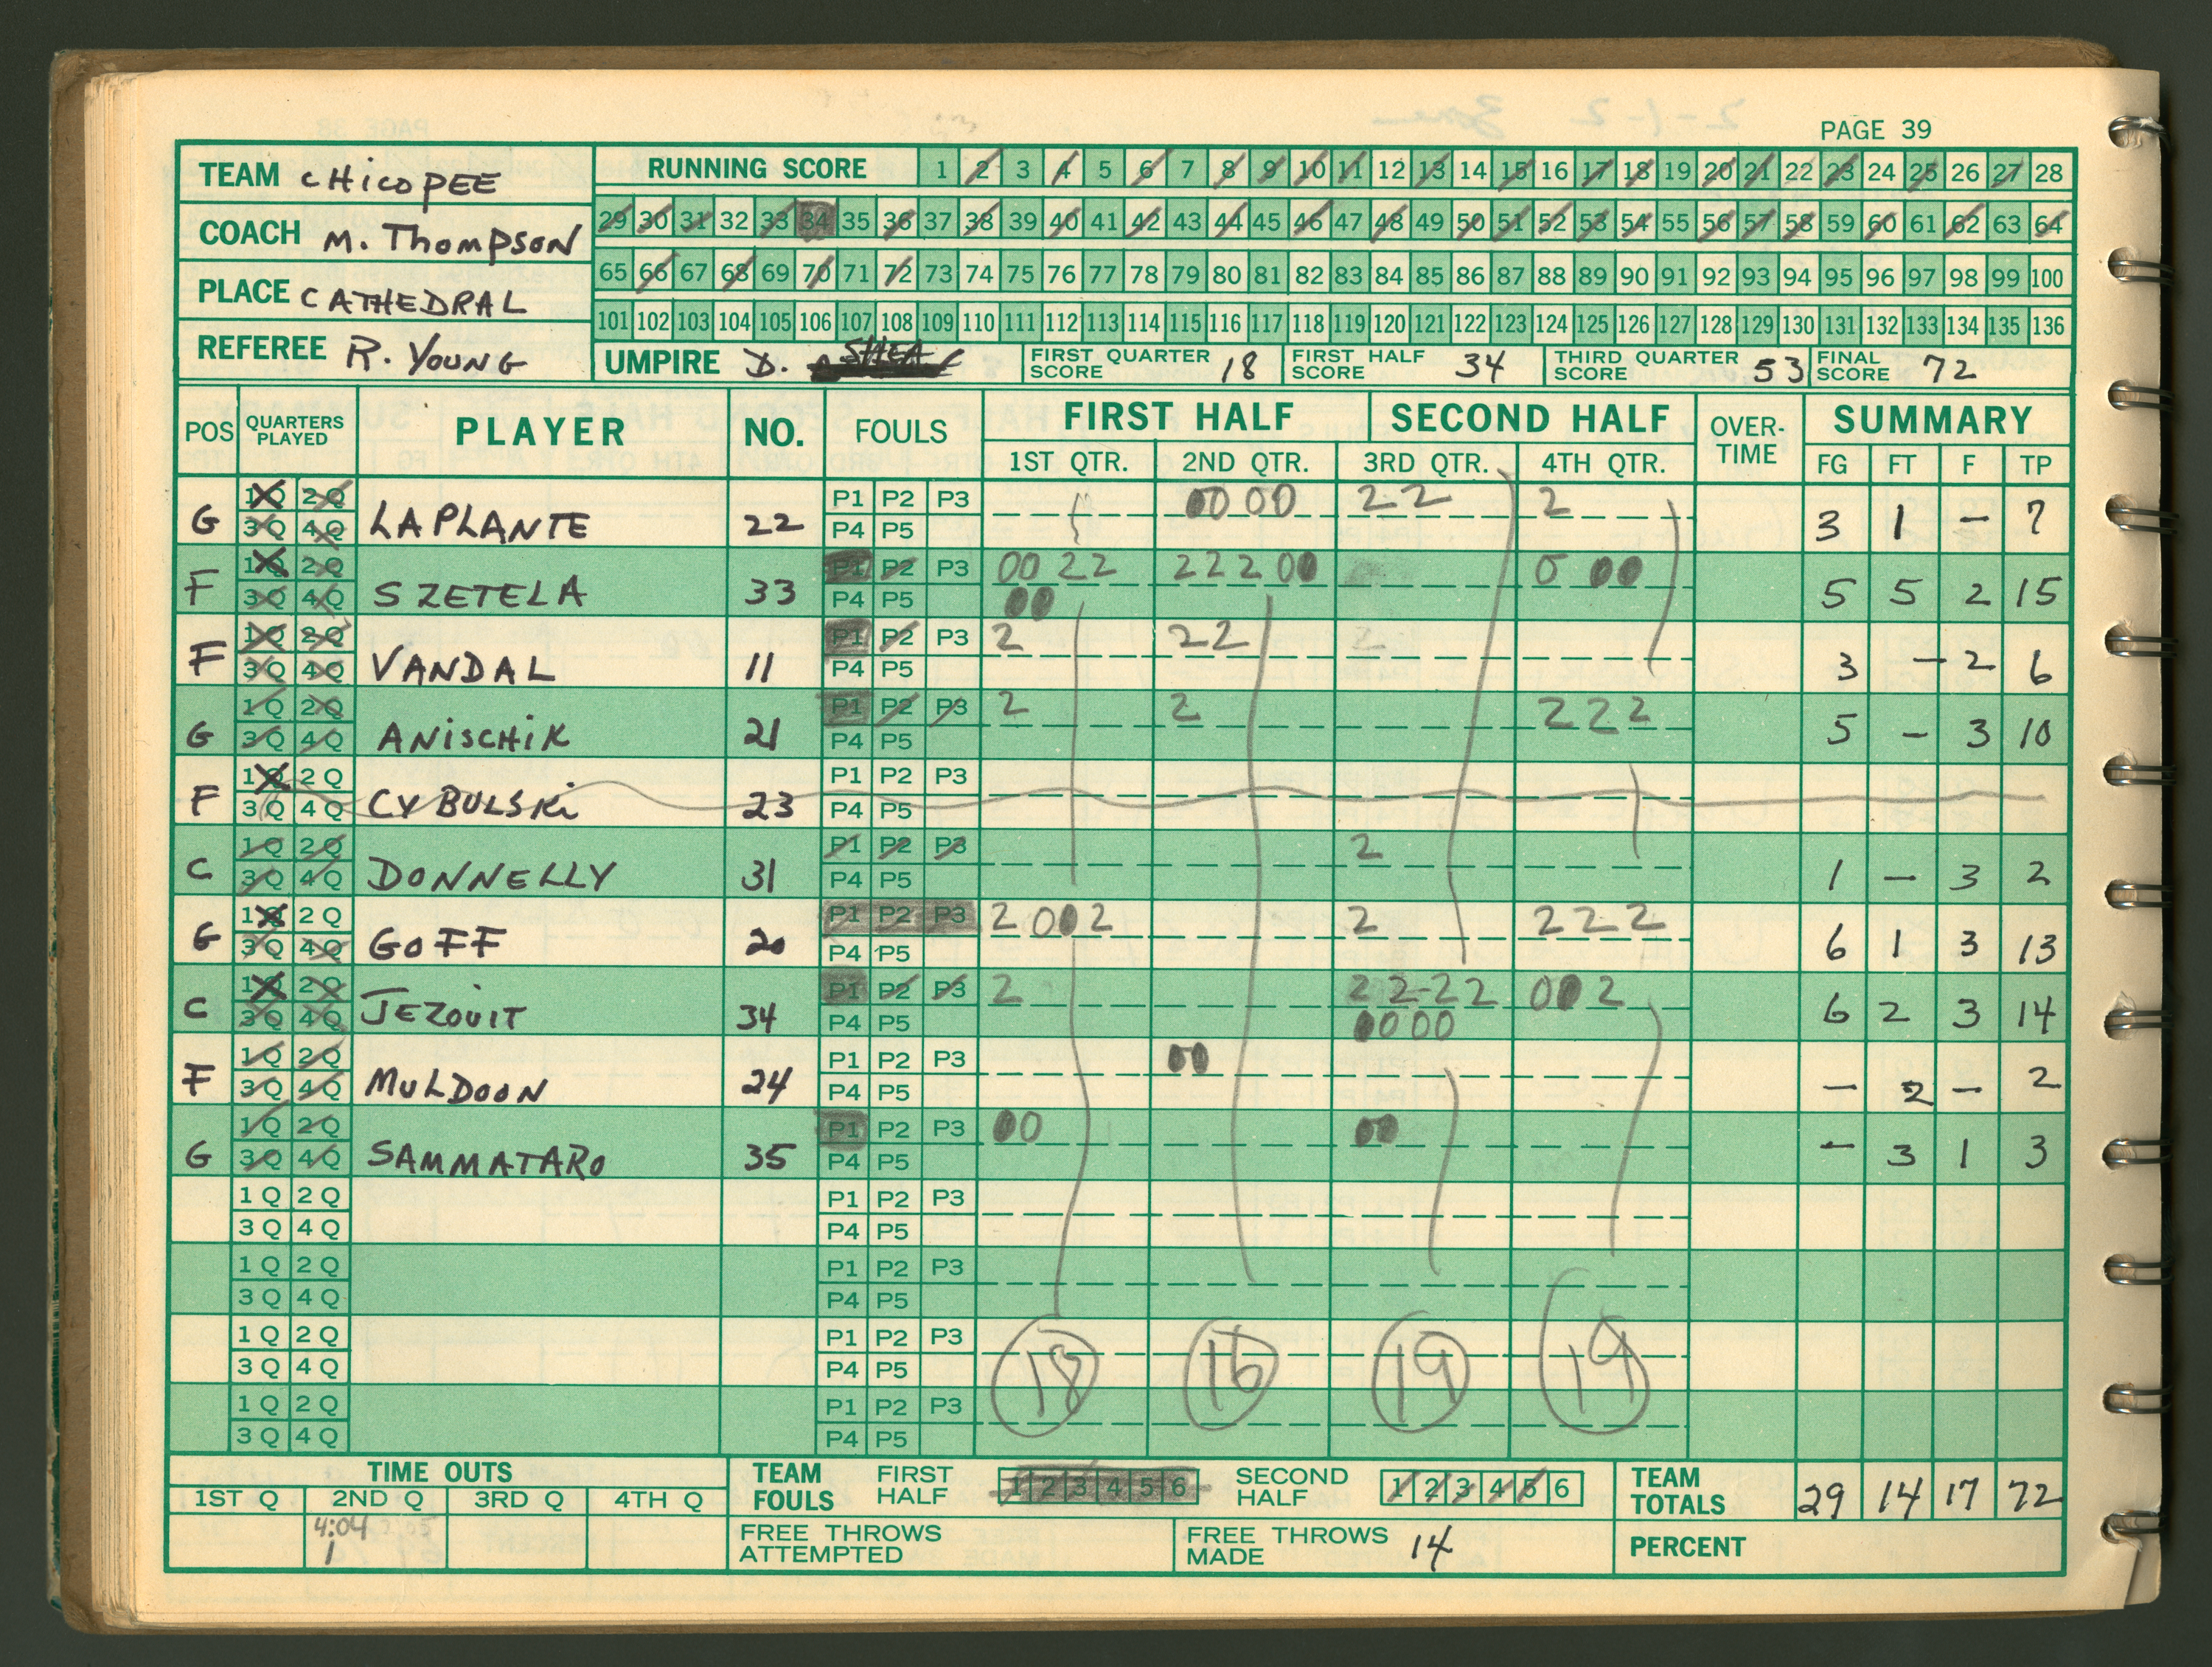 PAGE 39
TEAM CHICOPEE
COACH M. THOMPSON
PLACE CATHEDRAL
REFEREE R. YOUNG
RUNNING SCORE 1 2 3 4 5 6 7 8 9 10 11 12 13 14 15 16 17 18 19 20 21 22 23 24 25 26 27 28
29 30 31 32 33 34 35 36 37 38 39 40 41 42 43 44 45 46 47 48 49 50 51 52 53 54 55 56 57 58 59 60 61 62 63 64
65 66 67 68 69 70 71 72 73 74 75 76 77 78 79 80 81 82 83 84 85 86 87 88 89 90 91 92 93 94 95 96 97 98 99 100
101 102 103 104 105 106 107 108 109 110 111 112 113 114 115 116 117 118 119 120 121 122 123 124 125 126 127 128 129 130 131 132 133 134 135 136
UMPIRE D. SHEA FIRST QUARTER SCORE 18 FIRST HALF SCORE 34 THIRD QUARTER SCORE 53 FINAL SCORE 72
POS QUARTERS PLAYED PLAYER NO. FOULS FIRST HALF SECOND HALF OVER-TIME SUMMARY
1ST QTR. 2ND QTR. 3RD QTR. 4TH QTR. FG FT F TP
1Q 2Q P1 P2 P3 00 00 2 2 2
G 3Q 4Q LAPLANTE 22 P4 P5 3 1 – 7
1Q 2Q P1 P2 P3 00 2 2 2 2 2 00 0 00
F 3Q 4Q SZETELA 33 P4 P5 00 5 5 2 15
1Q 2Q P1 P2 P3 2 2 2 2
F 3Q 4Q VANDAL 11 P4 P5 3 – 2 6
1Q 2Q P1 P2 P3 2 2 2 2 2
G 3Q 4Q ANISCHIK 21 P4 P5 5 – 3 10
1Q 2Q P1 P2 P3
F 3Q 4Q CYBULSKI 23 P4 P5
1Q 2Q P1 P2 P3 2
C 3Q 4Q DONNELLY 31 P4 P5 1 – 3 2
1Q 2Q P1 P2 P3 2 00 2 2 2 2 2
G 3Q 4Q GOFF 20 P4 P5 6 1 3 13
1Q 2Q P1 P2 P3 2 2 2-2 2 00 2
C 3Q 4Q JEZOUIT 34 P4 P5 00 00 6 2 3 14
1Q 2Q P1 P2 P3 00
F 3Q 4Q MULDOON 24 P4 P5 – 2 – 2
1Q 2Q P1 P2 P3 00 00
G 3Q 4Q SAMMATARO 35 P4 P5 – 3 1 3
1Q 2Q P1 P2 P3
3Q 4Q P4 P5
1Q 2Q P1 P2 P3
3Q 4Q P4 P5
1Q 2Q P1 P2 P3
3Q 4Q P4 P5
18 16 19 19
1Q 2Q P1 P2 P3
3Q 4Q P4 P5
TIME OUTS TEAM FOULS FIRST HALF 1 2 3 4 5 6 SECOND HALF 1 2 3 4 5 6 TEAM TOTALS 29 14 17 72
1ST Q 2ND Q 3RD Q 4TH Q
4:04
1
FREE THROWS ATTEMPTED FREE THROWS MADE 14 PERCENT